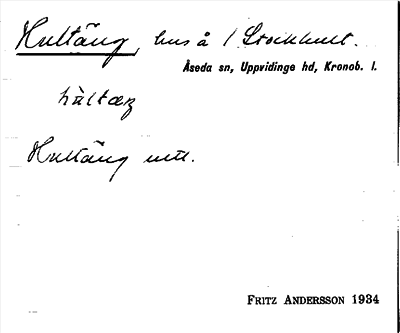 Hultäng, hus å 1 Stockhult.
Åseda sn, Uppvidinge hd, Kronob. l.
Hultäng utt.
FRITZ ANDERSSON 1934